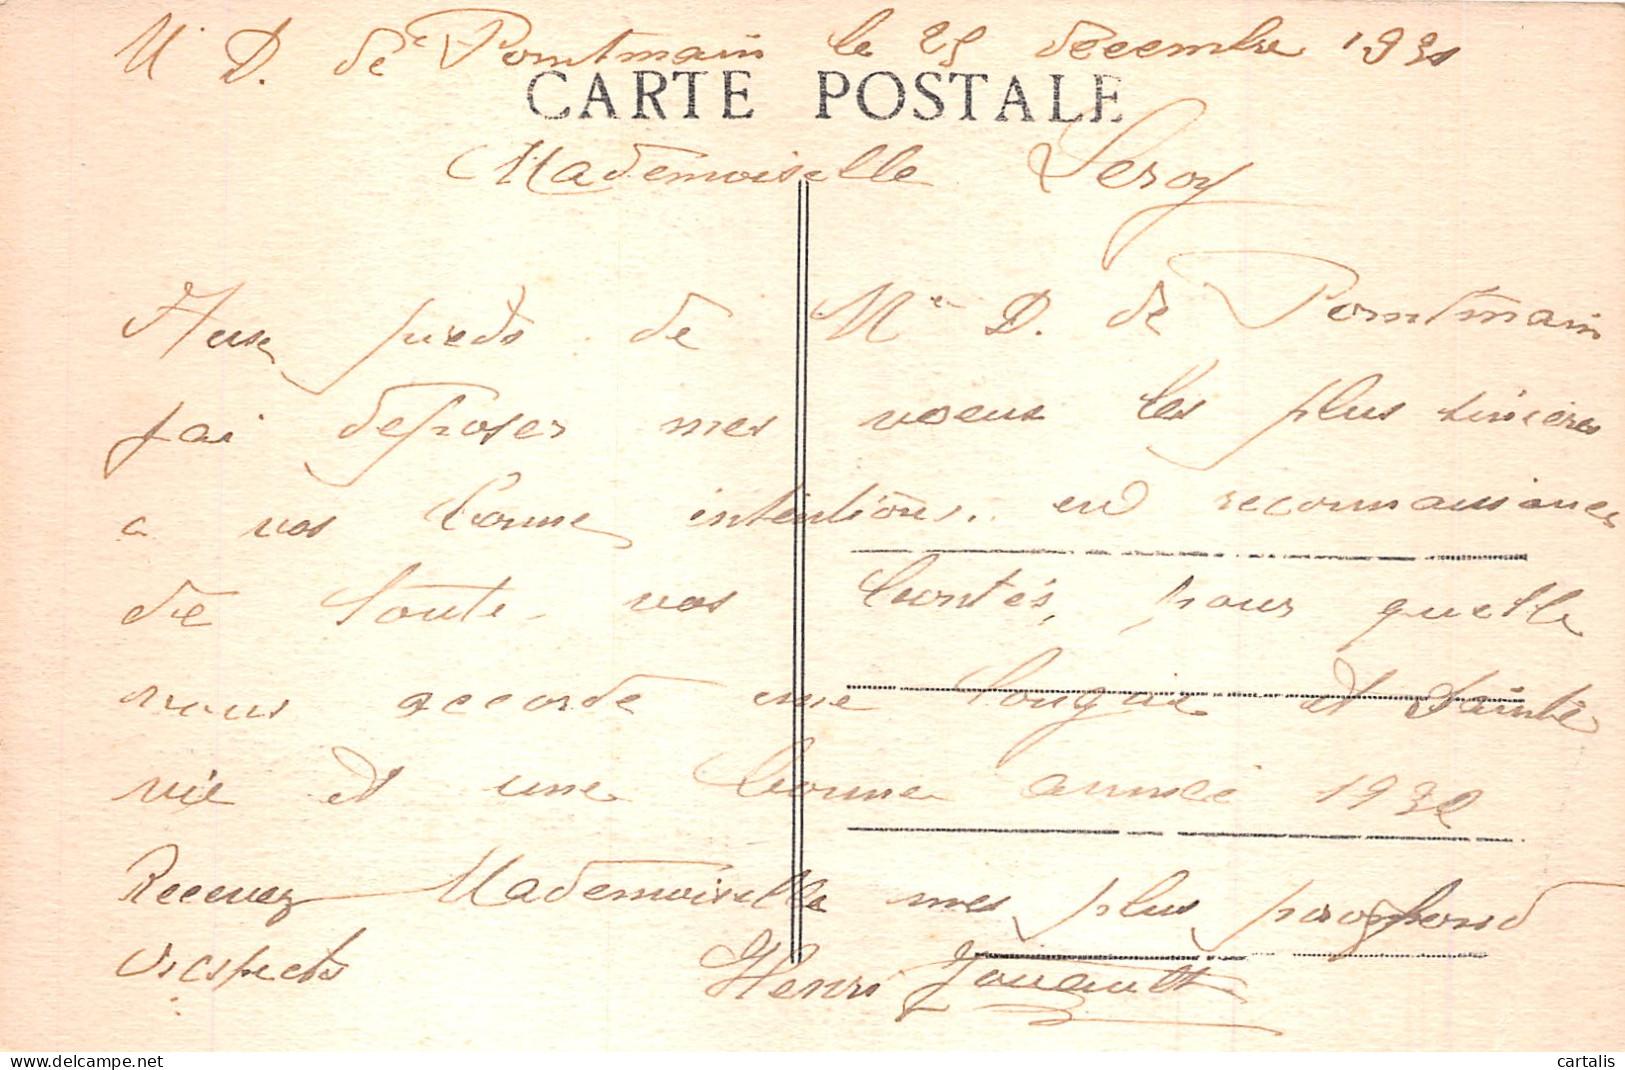 N. D. de Pontmain le 25 decembre 1931
CARTE POSTALE
Mademoiselle Leroy
Aux pieds de N. D. de Pontmain
jai deposer mes voeux les plus sincères
a vos bonne intentions. en reconnaissance
de toute vos bontés, pour quelle
nous accorde une longue et sainte
vie et une bonne année 1932
Recevez Mademoiselle mes plus profond
respects Henri Jouault
cartalis